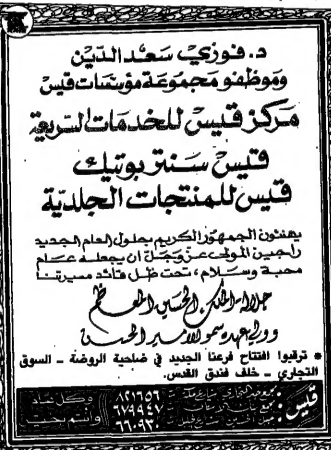 د. فوزي سعد الدين
وموظفو مجموعة مؤسسات قيس
مركز قيس للخدمات السريعة
قيس سنتر بوتيك
قيس للمنتجات الجلدية
يهنئون الجمهور الكريم بحلول العام الجديد
راجين المولى عز وجل ان يجعله عام
محبة وسلام، تحت ظل قائد مسيرتنا
جلالة الملك الحسين المعظم
وولي عهده سمو الامير الحسن
* ترقبوا افتتاح فرعنا الجديد في ضاحية الروضة - السوق
التجاري - خلف فندق القدس.
قيس:
٨٢١٦٥٦
٦٧٩٤٤٧
٦٦٠٩٣٠
وكل عام
وانتم بخير